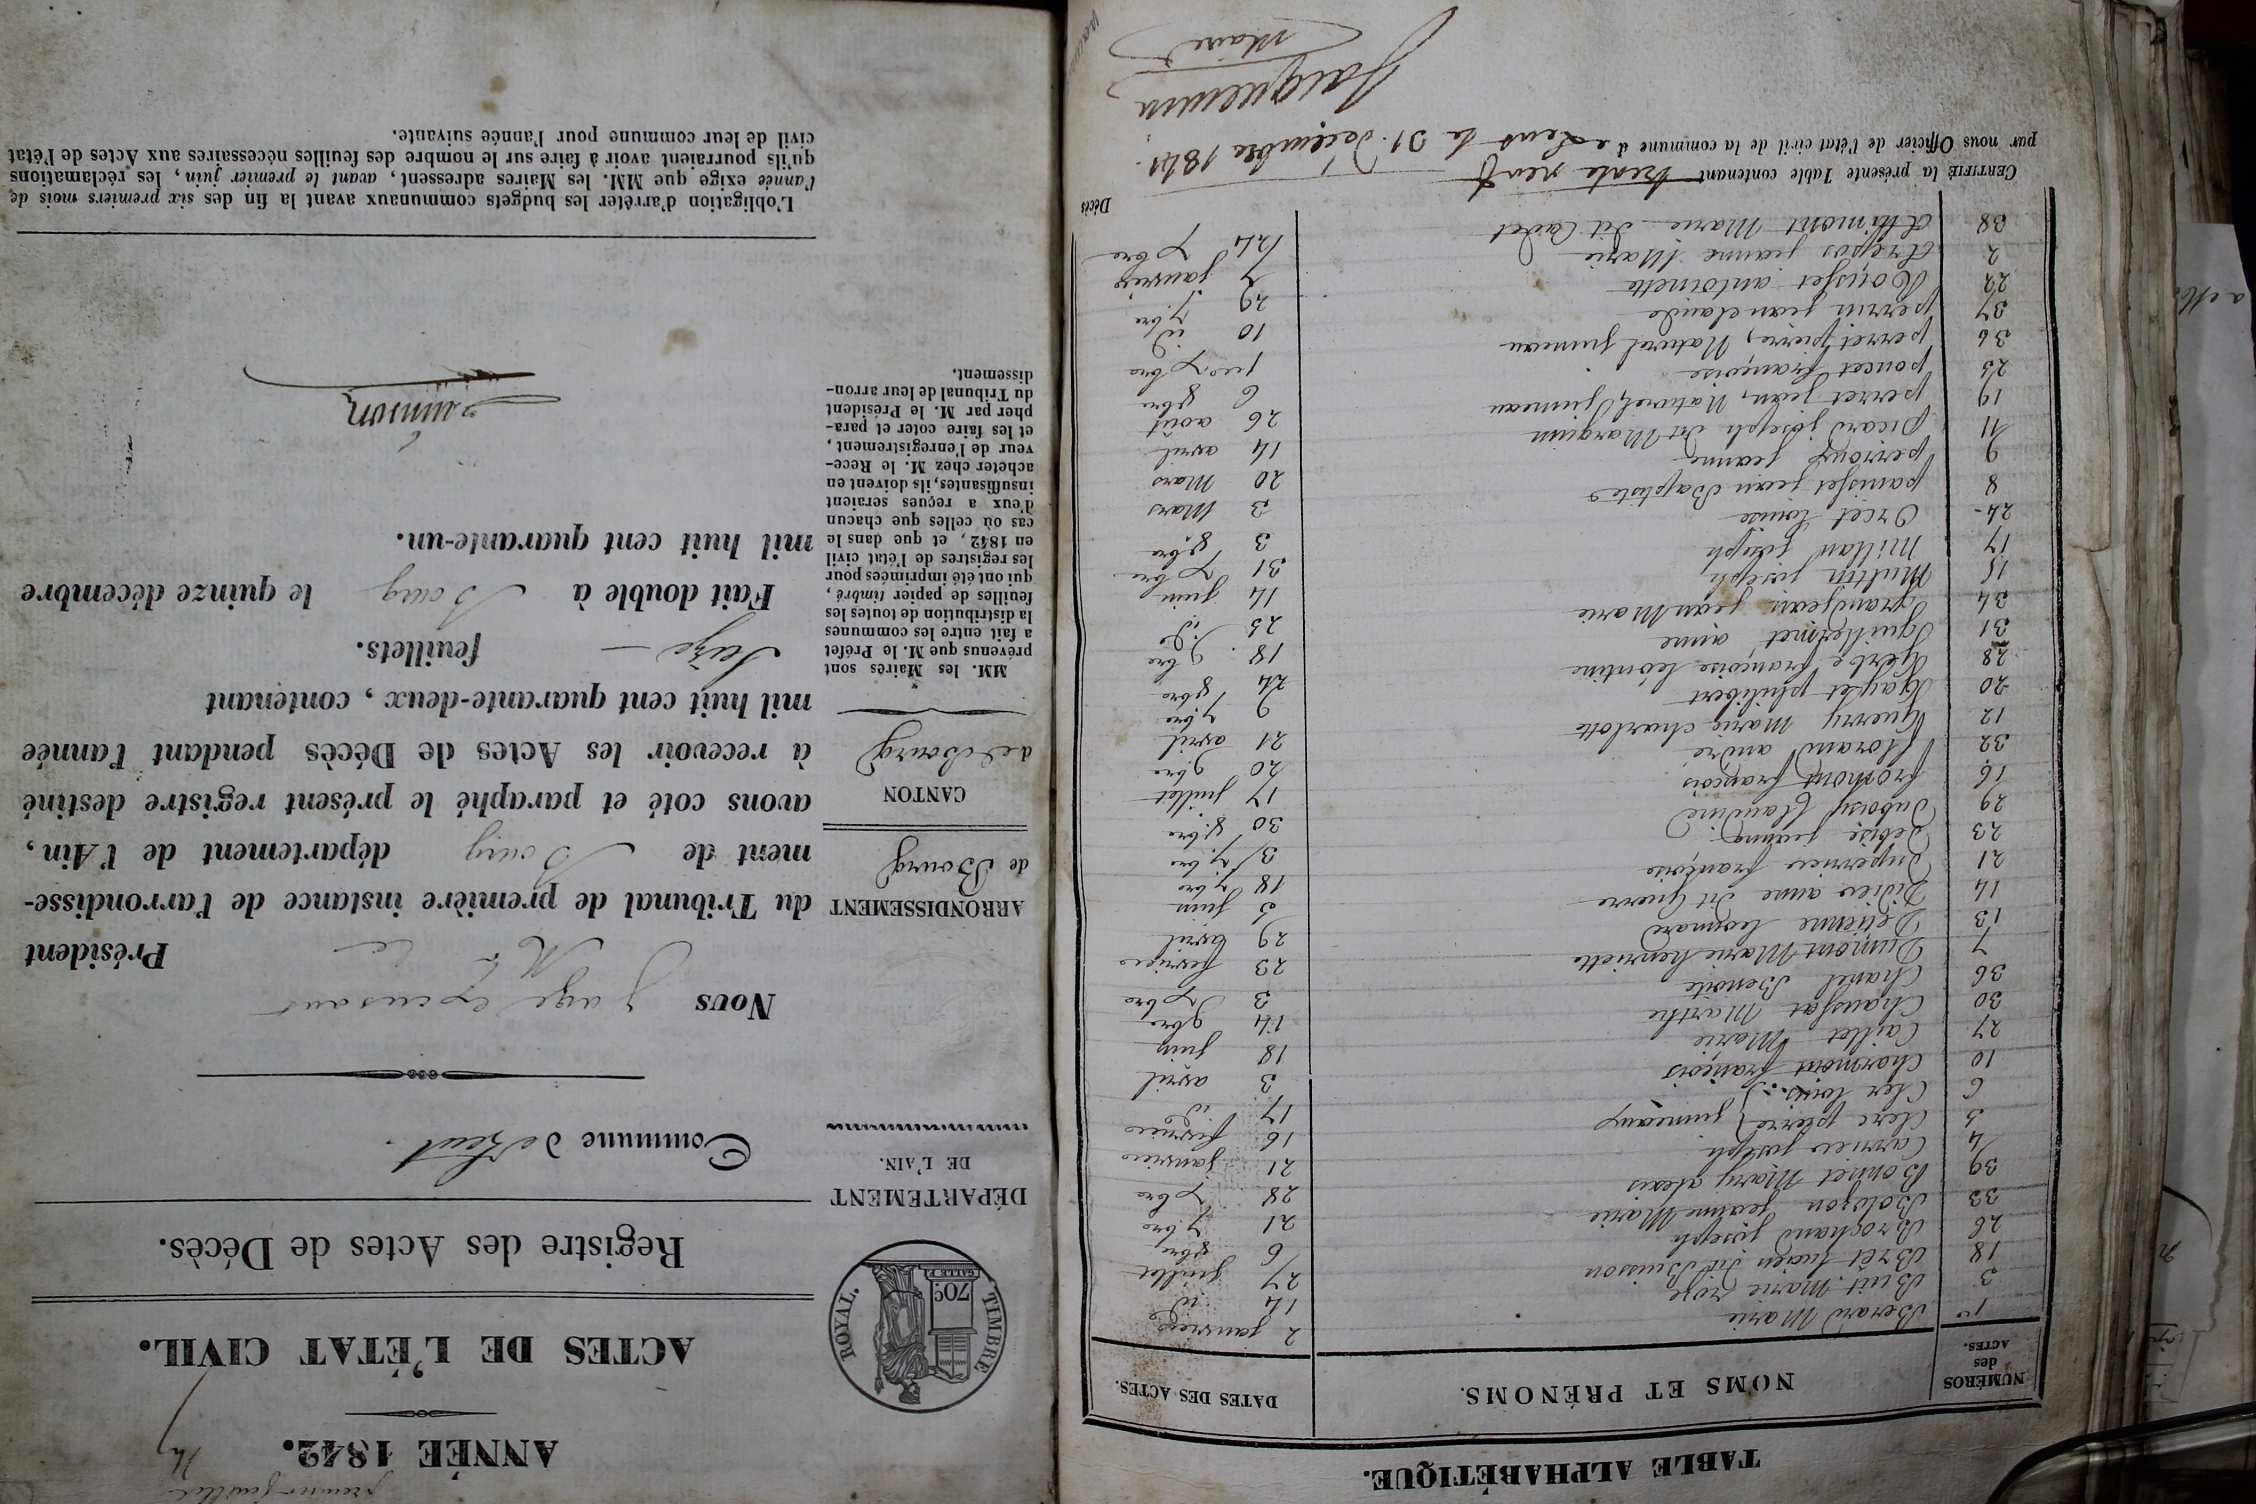 TABLE ALPHABÉTIQUE.
NUMÉROS des ACTES. NOMS ET PRÉNOMS. DATES DES ACTES.
1er Berard Marie 2 janvier
3 Buit Marie roze 14 id
18 Brêt eugen dit Buisson 27 juillet
26 Brochand joseph 6 8bre
33 Bolozon jeanne Marie 21 9bre
39 Bonnet Mary alexis 28 Xbre
4 Carrier joseph 21 janvier
5 Clerc pierre } jumeaux 16 fevrier
6 Cler louis } 17 id
10 Charmont françois 3 avril
27 Caillet Marie 18 juin
30 Chausfat Marthe 14 9bre
36 Chanel Benoite 3 Xbre
7 Dumont Marie henriette 23 fevrier
13 Detienne leonnard 29 avril
14 Didier anne dit Guerre 5 juin
21 Duperrier françoise 18 7bre
23 Debise jeanne 3 7bre
29 Dubois Claudine 30 8bre
16 fromont françois 17 juillet
32 florand andré 20 9bre
12 Guerry Marie Charlotte 21 avril
20 Gayet philibert 9 7bre
28 Gerbe françoise léontine 24 8bre
31 Guillermet anne 18 9bre
34 Grandjean jean Marie 25 id
15 Multin joseph 14 juin
17 Milland joseph 31 Xbre
24 Orcet louise 3 8bre
8 panisset jean Baptiste 3 Mars
9 perroud jeanne 20 Mars
11 picard joseph dit Marguin 14 avril
19 perret jean, Naturel, jumeau 26 août
25 poncet françoise 6 8bre
36 perret pierre, Naturel jumeau 1er Xbre
37 perrin jean claude 10 id
22 Rousset antoinette 29 7bre
2 trépos jeanne Marie 7 janvier
38 Attimont Marie dit Cadet 24 Xbre
Décès
CERTIFIÉ la présente Table contenant trente neuf
par nous Officier de l'état civil de la commune de Lent le 31 Décembre 1841.
Jacquemin
Maire
premier feuillet
ANNÉE 1842.
ACTES DE L'ÉTAT CIVIL.
TIMBRE ROYAL.
70c
Registre des Actes de Décès.
DÉPARTEMENT
DE L'AIN.
Commune de Lent.
ARRONDISSEMENT
de Bourg
CANTON
de Bourg
MM. les Maires sont
prévenus que M. le Préfet
a fait entre les communes
la distribution de toutes les
feuilles de papier timbré,
qui ont été imprimées pour
les registres de l'état civil
en 1842, et que dans le
cas où celles que chacun
d'eux a reçues seraient
insuffisantes, ils doivent en
acheter chez M. le Rece-
veur de l'enregistrement,
et les faire coter et para-
pher par M. le Président
du Tribunal de leur arron-
dissement.
Nous Juge
Président
du Tribunal de première instance de l'arrondisse-
ment de Bourg département de l'Ain,
avons coté et paraphé le présent registre destiné
à recevoir les Actes de Décès pendant l'année
mil huit cent quarante-deux, contenant
Seize feuillets.
Fait double à Bourg le quinze décembre
mil huit cent quarante-un.
L'obligation d'arrêter les budgets communaux avant la fin des six premiers mois de
l'année exige que MM. les Maires adressent, avant le premier juin, les réclamations
qu'ils pourraient avoir à faire sur le nombre des feuilles nécessaires aux Actes de l'état
civil de leur commune pour l'année suivante.